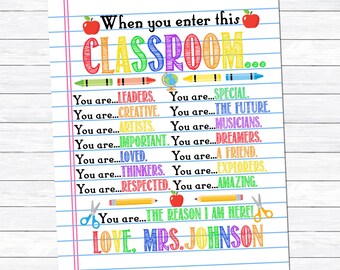 When you enter this
CLASSROOM...
You are...LEADERS. You are...SPECIAL.
You are...CREATIVE. You are...THE FUTURE.
You are...ARTISTS. You are...MUSICIANS.
You are...IMPORTANT. You are...DREAMERS.
You are...LOVED. You are...A FRIEND.
You are...THINKERS. You are...EXPLORERS.
You are...RESPECTED. You are...AMAZING.
You are...THE REASON I AM HERE!
LOVE, MRS.JOHNSON